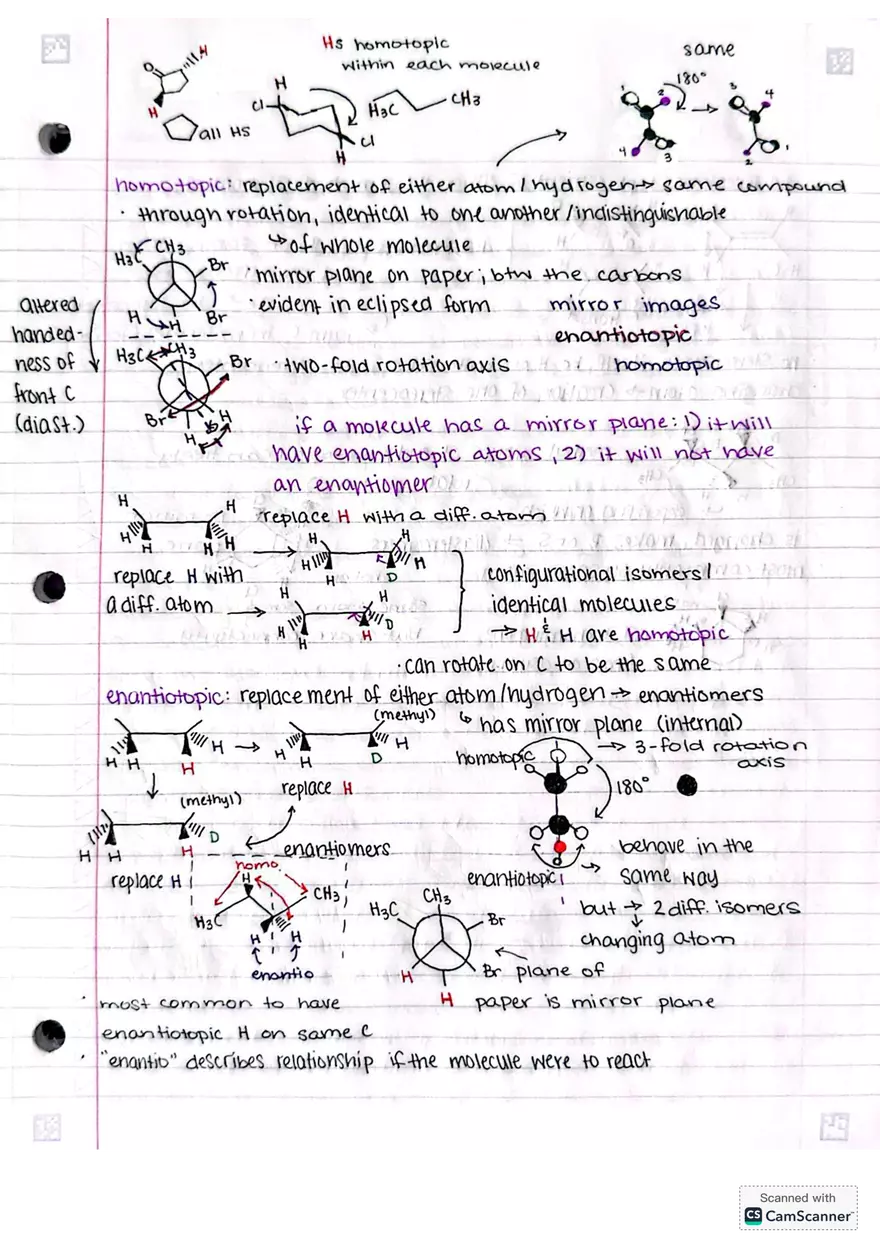 Hs homotopic
within each molecule
same
180°
O
H
H
all HS
H
Cl
Cl
H
H3C
CH3
1
2
4
3
3
4
2
1
homotopic: replacement of either atom/hydrogen → same compound
· through rotation, identical to one another/indistinguishable
↳ of whole molecule
H3C CH3
Br
Br
H H
· mirror plane on paper; btw the carbons
· evident in eclipsed form
mirror images
enantiotopic
altered
handed-
ness of
front C
(diast.)
H3C CH3
Br
Br
H
H
· two-fold rotation axis
homotopic
if a molecule has a mirror plane: 1) it will
have enantiotopic atoms, 2) it will not have
an enantiomer
H H
H H
H H
replace H with a diff. atom
→
H H
H H
H D
replace H with
a diff. atom →
H H
H D
H H
configurational isomers/
identical molecules
→ H & H are homotopic
· can rotate on C to be the same
enantiotopic: replacement of either atom/hydrogen → enantiomers
↳ has mirror plane (internal)
H H H
H
→
(methyl)
H H
H D
replace H
homotopic
→ 3-fold rotation
axis
180°
(methyl)
D
H H H
replace H
enantiomers
homo
H
H3C
CH3
H H
enantio
enantiotopic
behave in the
→ same way
but → 2 diff. isomers
↓
changing atom
CH3
H3C
Br
Br
H
H
plane of
paper is mirror plane
· most common to have
enantiotopic H on same C
· "enantio" describes relationship if the molecule were to react
Scanned with
CS CamScanner